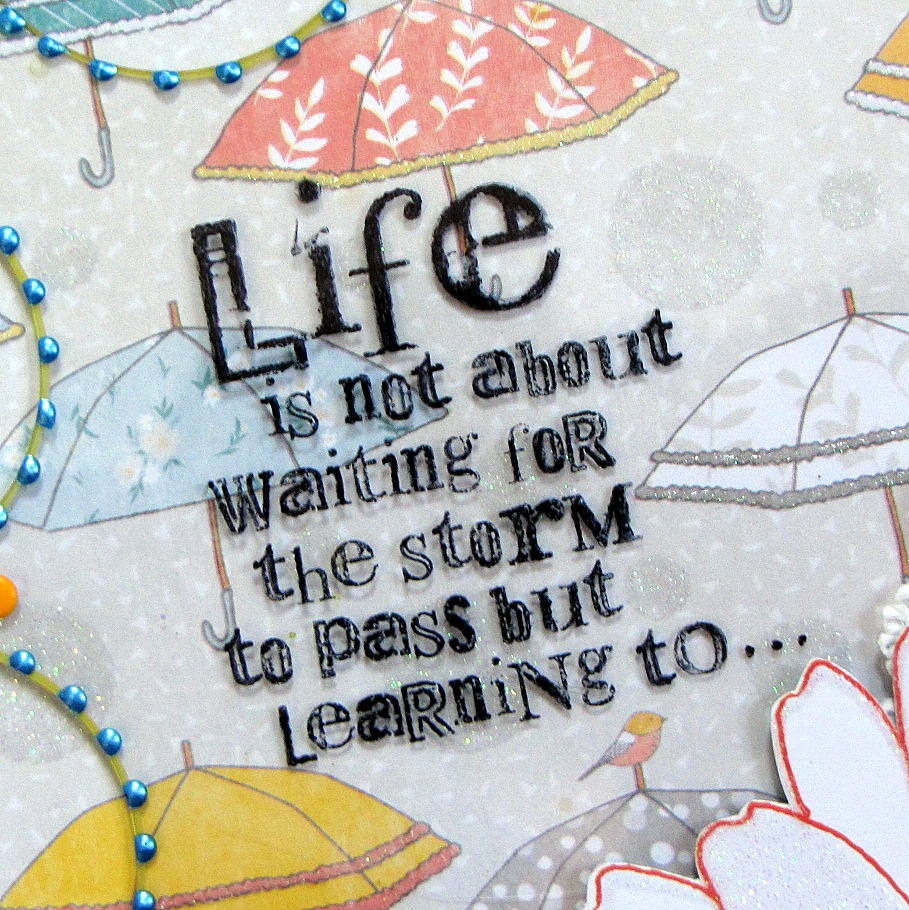 Life
is not about
waiting foR
the storM
to pass but
LeaRniNg to...